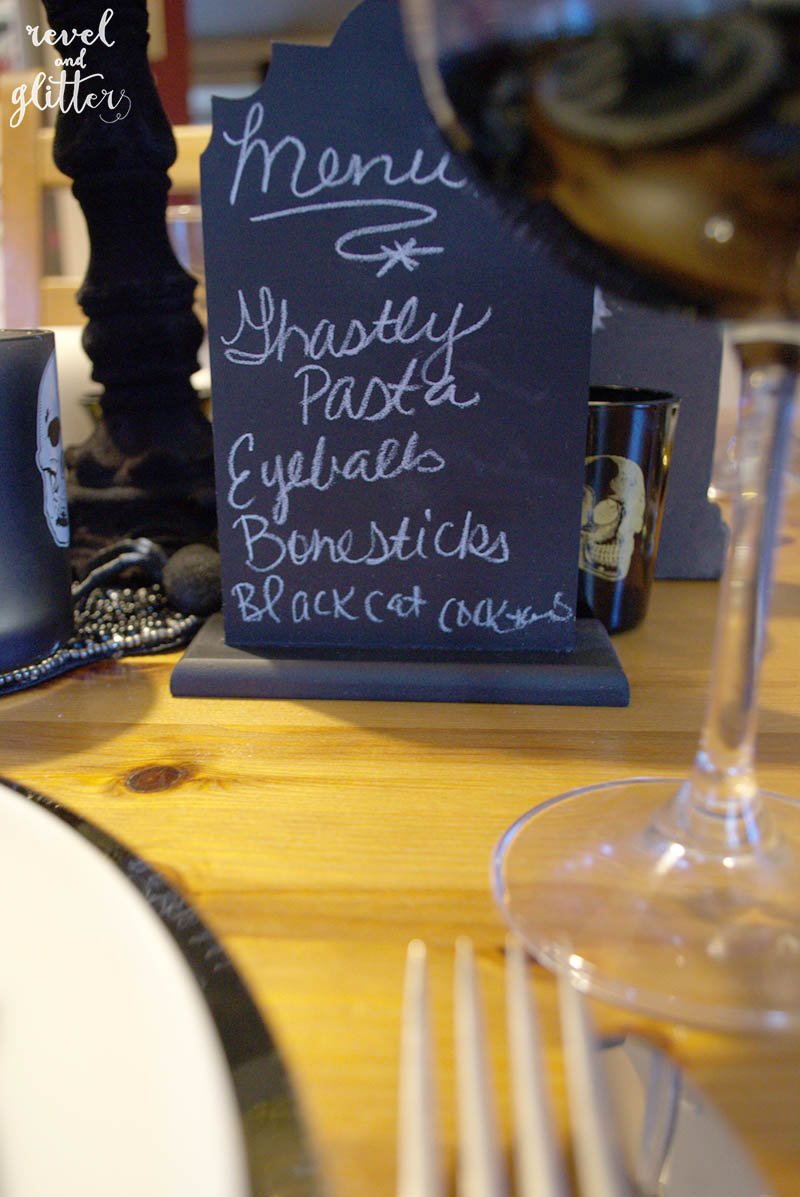 revel
and
glitter
Menu
Ghastly
Pasta
Eyeballs
Bonesticks
Black cat cocktails